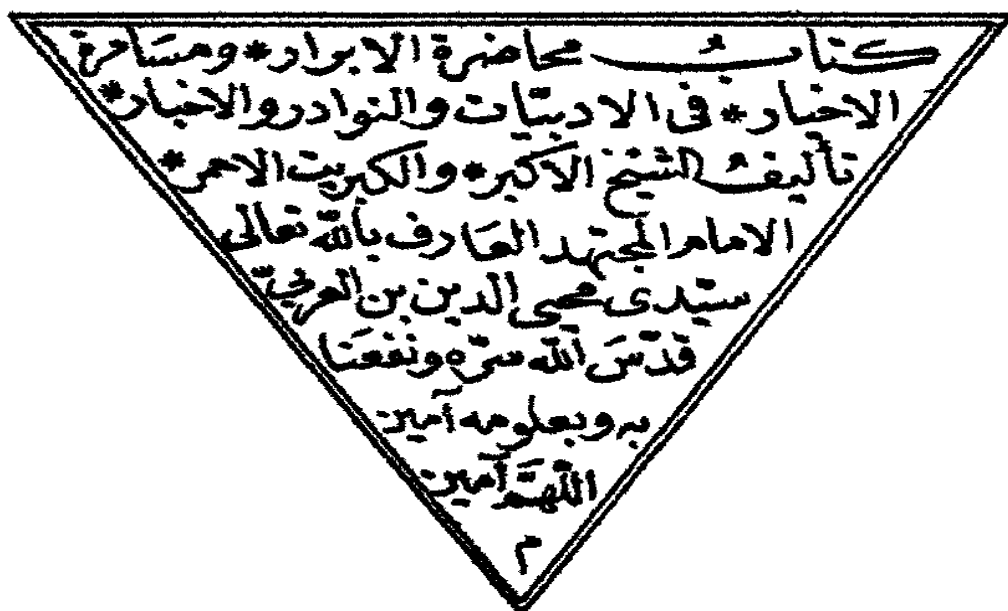 كتابُ محاضرة الابرار * ومسامرة
الاخيار * فى الادبيّات والنوادر والاخبار *
تأليفُ الشيخ الاكبر * والكبريت الاحمر *
الامام المجتهد العَارف بالله تعالى
سيّدى محيى الدين بن العربيّ
قدّسَ الله سرّه ونفعَنا
به وبعلومه آمين
اللّهمَّ آمين
م